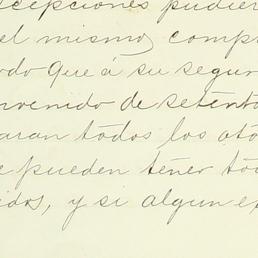 cepciones pudier
el mismo, comp
rdo que á su segur
nvenido de setenta
aran todos los oto
e pueden tener to
idos, y si algun ex